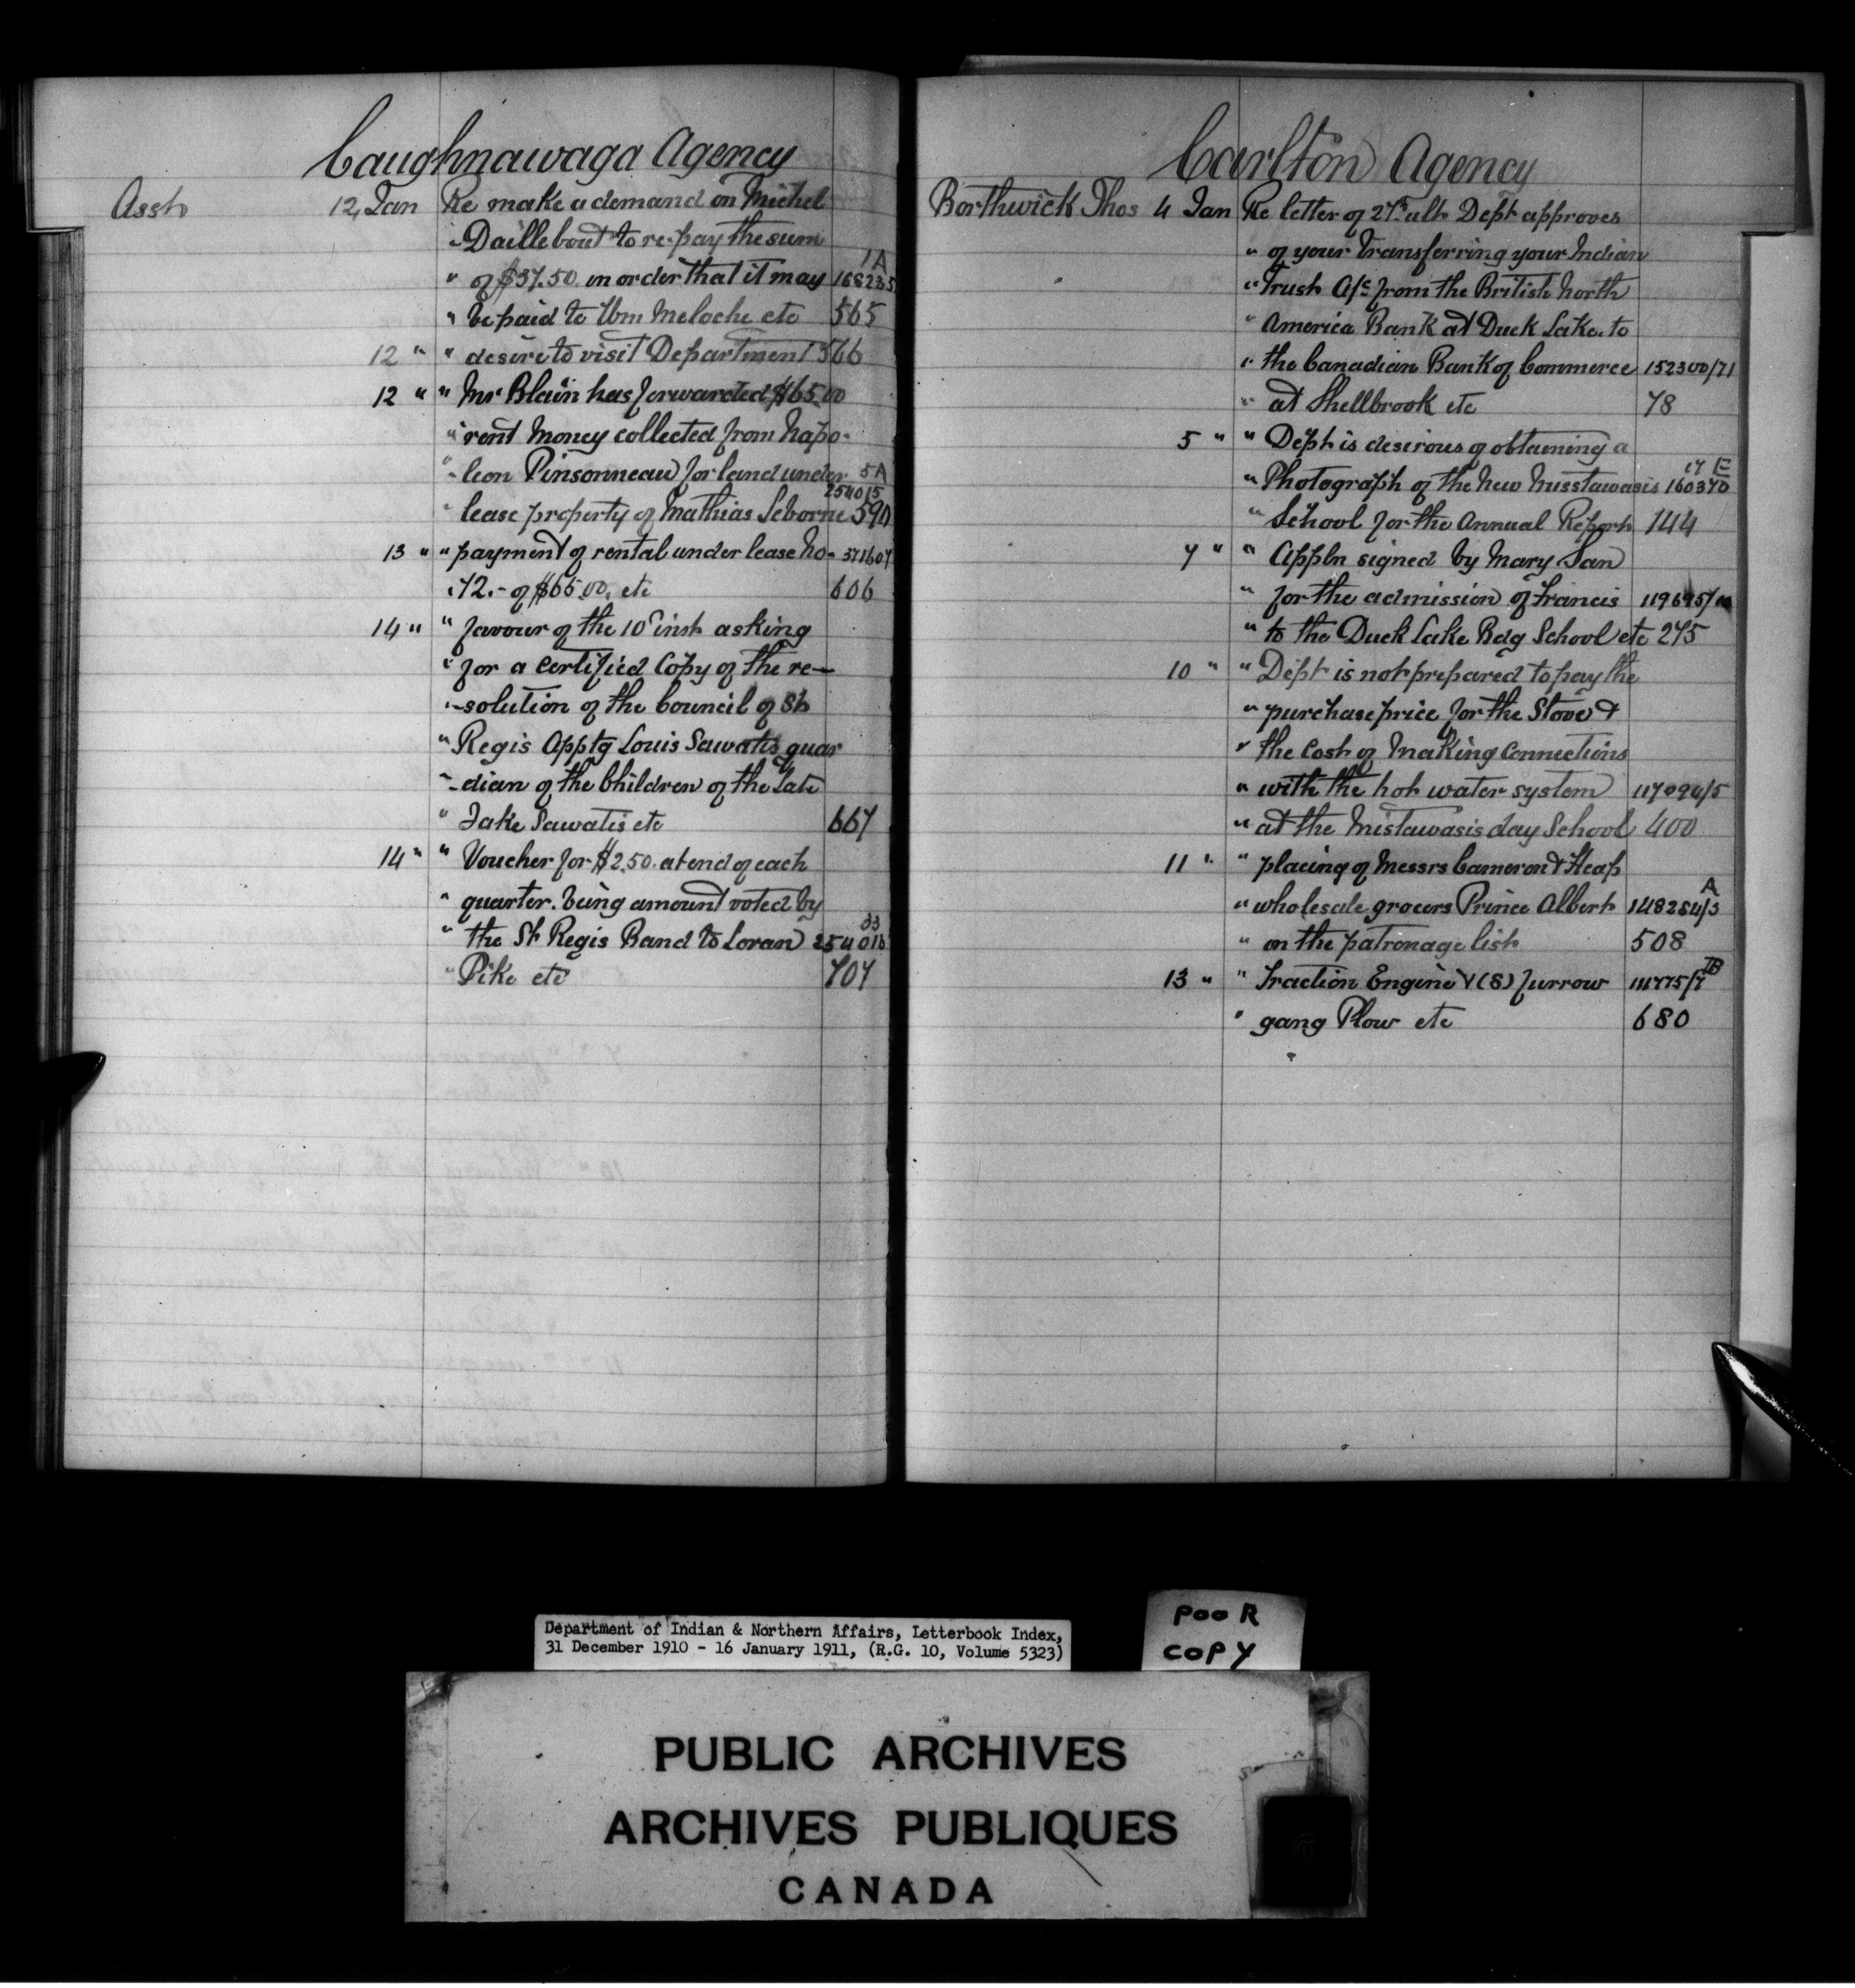 Caughnawaga Agency
Asst 12 Jan Re make a demand on Michel
" Daillebout to re-pay the sum 1A
" of $37.50 in order that it may 168235
" be paid to Wm Meloche etc 565
12 " " desire to visit Department 566
12 " " Mr Blain has forwarded $65.00
" rent money collected from Napo-
" -leon Pinsonneau for land under 5A
254015
" lease property of Mathias Leborne 590
13 " " payment of rental under lease No- 371607
" 72.- of $65.00. etc 606
14 " " favour of the 10th inst asking
" for a certified Copy of the re-
" -solution of the Council of St
" Regis Apptg Louis Sawatis guar
" -dian of the Children of the Late
" Jake Sawatis etc 667
14 " " Voucher for $2.50. at end of each
" quarter. being amount voted by
33
" the St Regis Band to Loran 254016
" Pike etc 707
Carlton Agency
Borthwick Thos 4 Jan Re letter of 27th ult Dept approves
" of your transferring your Indian
" Trust A/c from the British North
" America Bank at Duck Lake to
" the Canadian Bank of Commerce 152300/71
" at Shellbrook etc 78
5 " " Dept is desirous of obtaining a
17 E
" Photograph of the New Misstawasis 160370
" School for the Annual Report 144
7 " " Appln signed by Mary San
" for the admission of Francis
" to the Duck Lake Bdg School etc 275
10 " " Dept is not prepared to pay the
" purchase price for the Stove &
" the Cost of Making Connections
" with the hot water system 117094/5
" at the Mistawasis day School 400
11 " " placing of Messrs Cameron & Heap
A
" wholesale grocers Prince Albert 148254/3
" on the patronage list 508
13 " " Traction Engine & (8) furrow
" gang Plow etc 680
Department of Indian & Northern Affairs, Letterbook Index,
31 December 1910 - 16 January 1911, (R.G. 10, Volume 5323)
POOR
COPY
PUBLIC ARCHIVES
ARCHIVES PUBLIQUES
CANADA